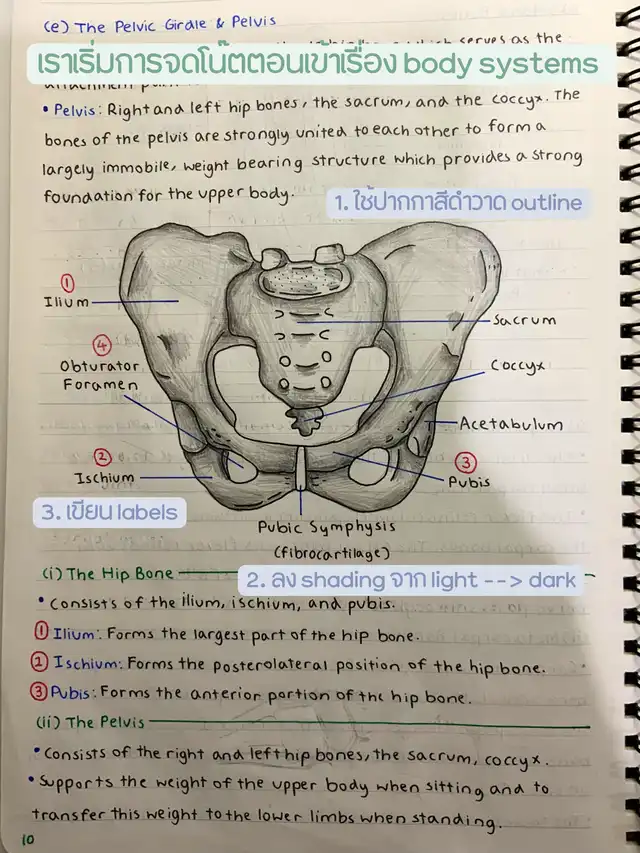 (e) The Pelvic Girdle & Pelvis
serves as the
เราเริ่มการจดโน๊ตตอนเข้าเรื่อง body systems
• Pelvis: Right and left hip bones, the sacrum, and the coccyx. The
bones of the pelvis are strongly united to each other to form a
largely immobile, weight bearing structure which provides a strong
foundation for the upper body.
1. ใช้ปากกาสีดำวาด outline
1
Ilium
Sacrum
4
Obturator
Foramen
Coccyx
Acetabulum
2
Ischium
3
Pubis
3. เขียน labels
Pubic Symphysis
(fibrocartilage)
(i) The Hip Bone
2. ลง shading จาก light --> dark
• Consists of the ilium, ischium, and pubis.
1 Ilium: Forms the largest part of the hip bone.
2 Ischium: Forms the posterolateral position of the hip bone.
3 Pubis: Forms the anterior portion of the hip bone.
(ii) The Pelvis
• Consists of the right and left hip bones, the sacrum, coccyx.
• Supports the weight of the upper body when sitting and to
transfer this weight to the lower limbs when standing.
10